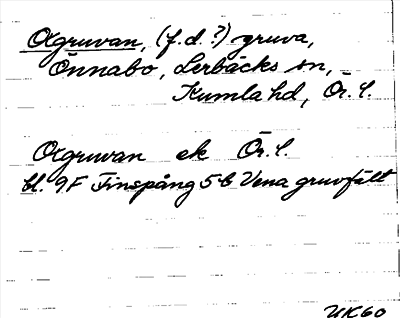 Oxgruvan, (f.d.?) gruva,
Önnabo, Lerbäcks sn,
Kumla hd, Ör. l.
Oxgruvan ek Ör. l.
bl. 9F Finspång 5 b Vena gruvfält
UK60